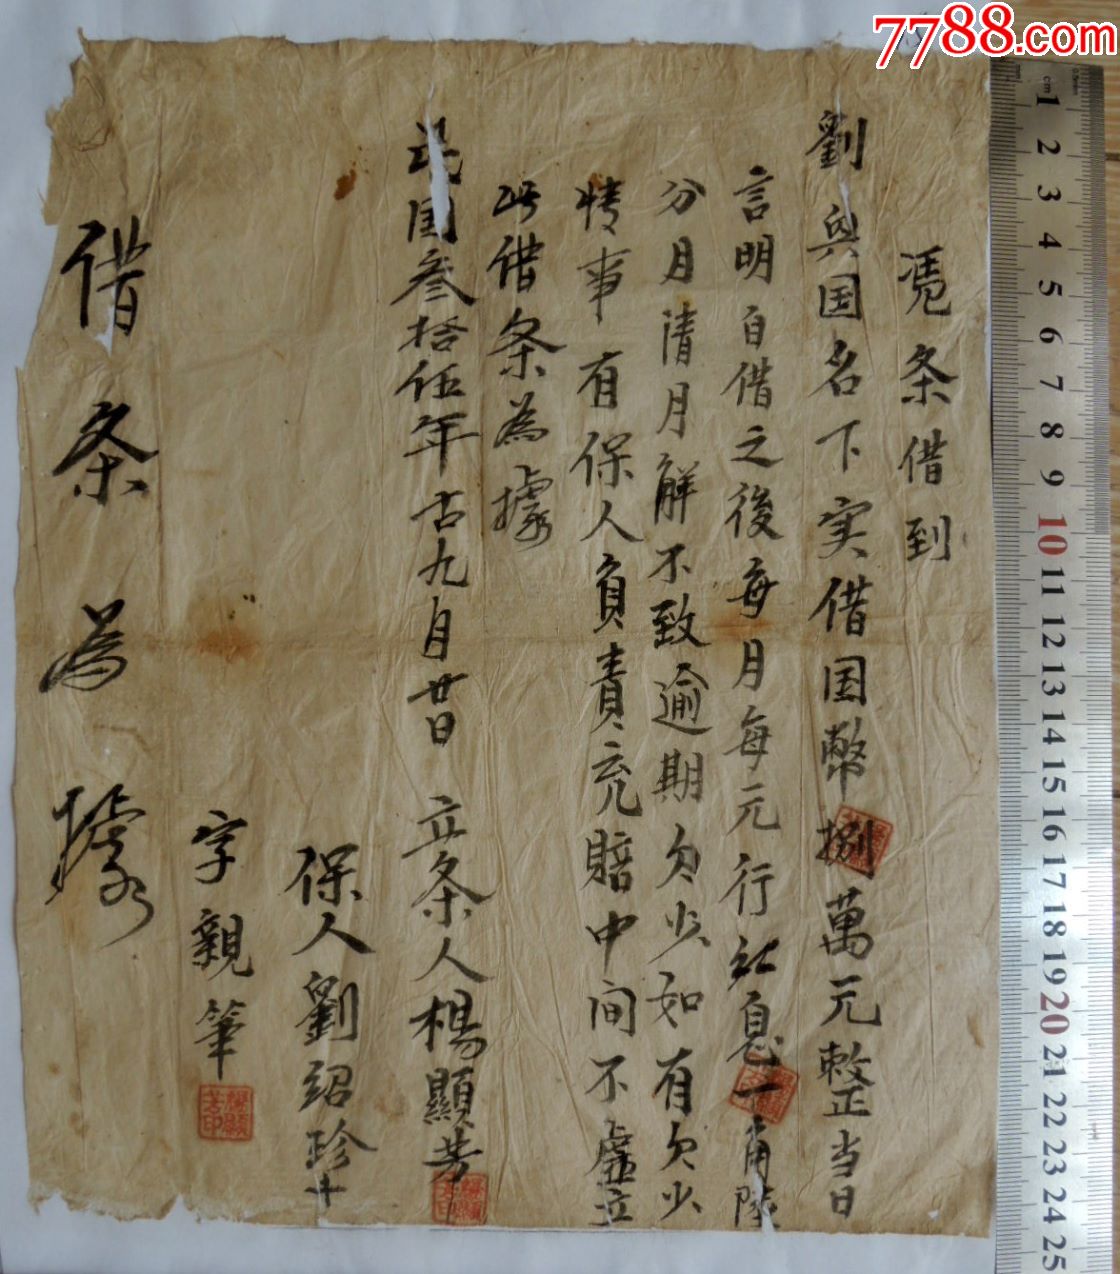 憑条借到
劉興国名下实借国幣捌萬元整当日
言明自借之後每月每元行利息一角陸
分月清月解不致逾期欠少如有欠少
情事有保人負責充賠中间不虚立
此借条為據
民国叁拾伍年古九月廿日 立条人楊顯芳
保人劉紹珍十
字親筆
借条為據
楊顯芳印
7788.com
cm
1
2
3
4
5
6
7
8
9
10
11
12
13
14
15
16
17
18
19
20
21
22
23
24
25